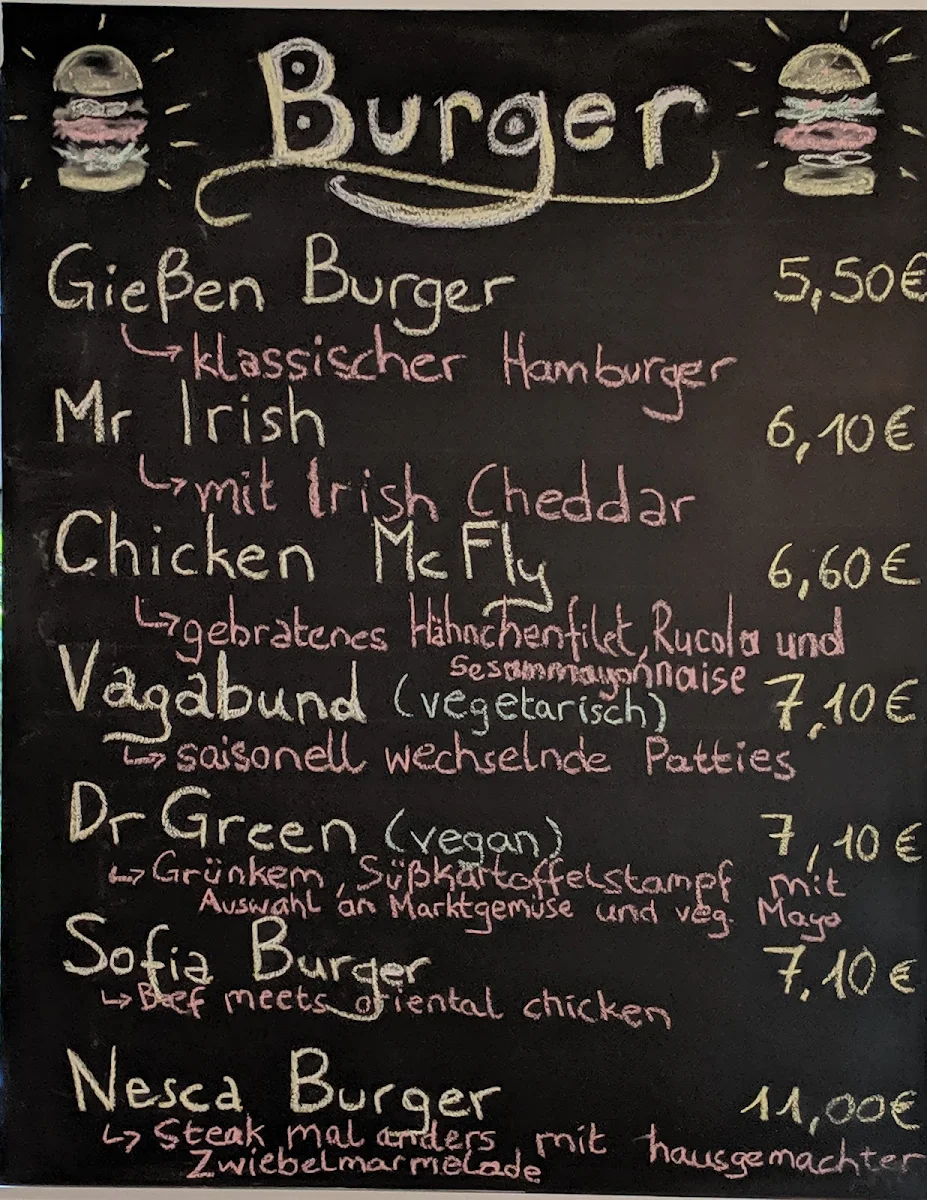 Burger
Gießen Burger 5,50€
klassischer Hamburger
Mr Irish 6,10€
mit Irish Cheddar
Chicken McFly 6,60€
gebratenes Hähnchenfilet, Rucola und
Sesammayonnaise
Vagabund (vegetarisch) 7,10€
saisonell wechselnde Patties
Dr Green (vegan) 7,10€
Grünkern, Süßkartoffelstampf mit
Auswahl an Marktgemüse und veg. Mayo
Sofia Burger 7,10€
Beef meets oriental chicken
Nesca Burger 11,00€
Steak mal anders mit hausgemachter
Zwiebelmarmelade